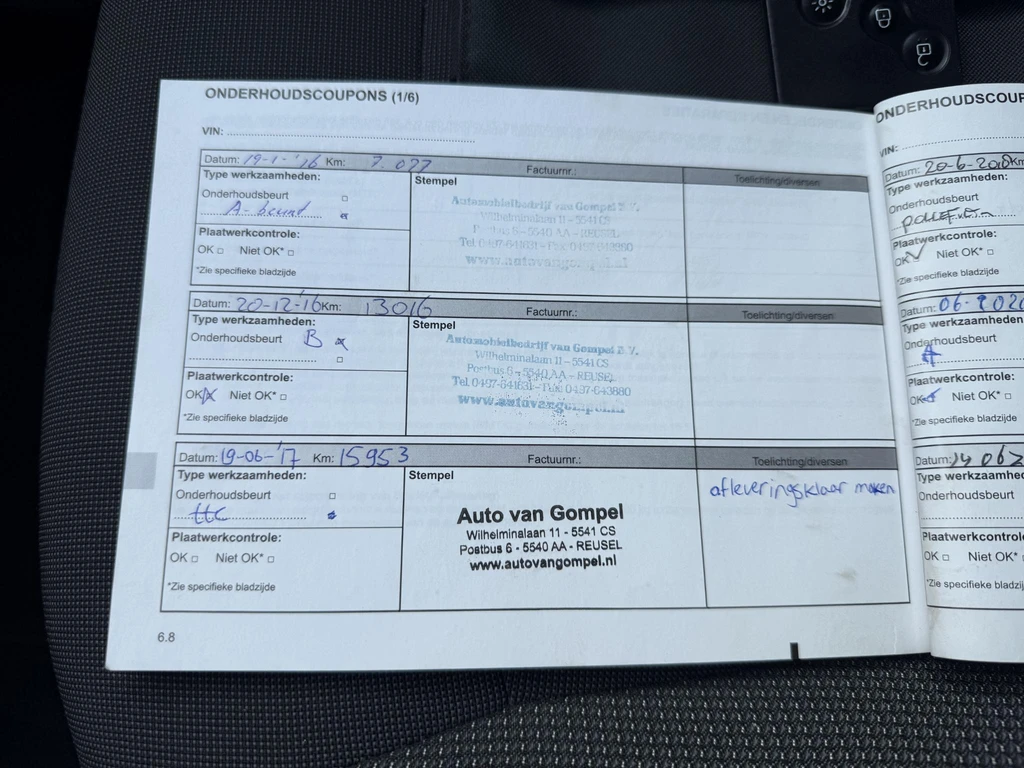 ONDERHOUDSCOUPONS (1/6)
VIN:
Datum: 19-1-'16 Km: 7.077 Factuurnr.:
Type werkzaamheden: Stempel Toelichting/diversen
Onderhoudsbeurt
A-beurt
Automobielbedrijf van Gompel B.V.
Wilhelminalaan 11 - 5541 CS
Postbus 6 - 5540 AA - REUSEL
Tel. 0497-641631 - Fax 0497-643880
www.autovangompel.nl
Plaatwerkcontrole:
OK Niet OK*
*Zie specifieke bladzijde
Datum: 20-12-'16 Km: 13016 Factuurnr.:
Type werkzaamheden: Stempel Toelichting/diversen
Onderhoudsbeurt B x
Automobielbedrijf van Gompel B.V.
Wilhelminalaan 11 - 5541 CS
Postbus 6 - 5540 AA - REUSEL
Tel. 0497-641631 - Fax 0497-643880
www.autovangompel.nl
Plaatwerkcontrole:
OK x Niet OK*
*Zie specifieke bladzijde
Datum: 19-06-'17 Km: 15953 Factuurnr.:
Type werkzaamheden: Stempel Toelichting/diversen
Onderhoudsbeurt
ttc
Auto van Gompel
Wilhelminalaan 11 - 5541 CS
Postbus 6 - 5540 AA - REUSEL
www.autovangompel.nl
afleveringsklaar maken
Plaatwerkcontrole:
OK Niet OK*
*Zie specifieke bladzijde
6.8
ONDERHOUDSCOUP
VIN:
Datum: 20-6-2018 Km
Type werkzaamheden:
Onderhoudsbeurt
Plaatwerkcontrole:
OK Niet OK*
*Zie specifieke bladzijde
Datum: 06-
Type werkzaamheden
Onderhoudsbeurt
A
Plaatwerkcontrole:
OK Niet OK*
*Zie specifieke bladzijde
Datum: 14 06
Type werkzaamhed
Onderhoudsbeurt
Plaatwerkcontrole
OK Niet OK*
*Zie specifieke bladzij